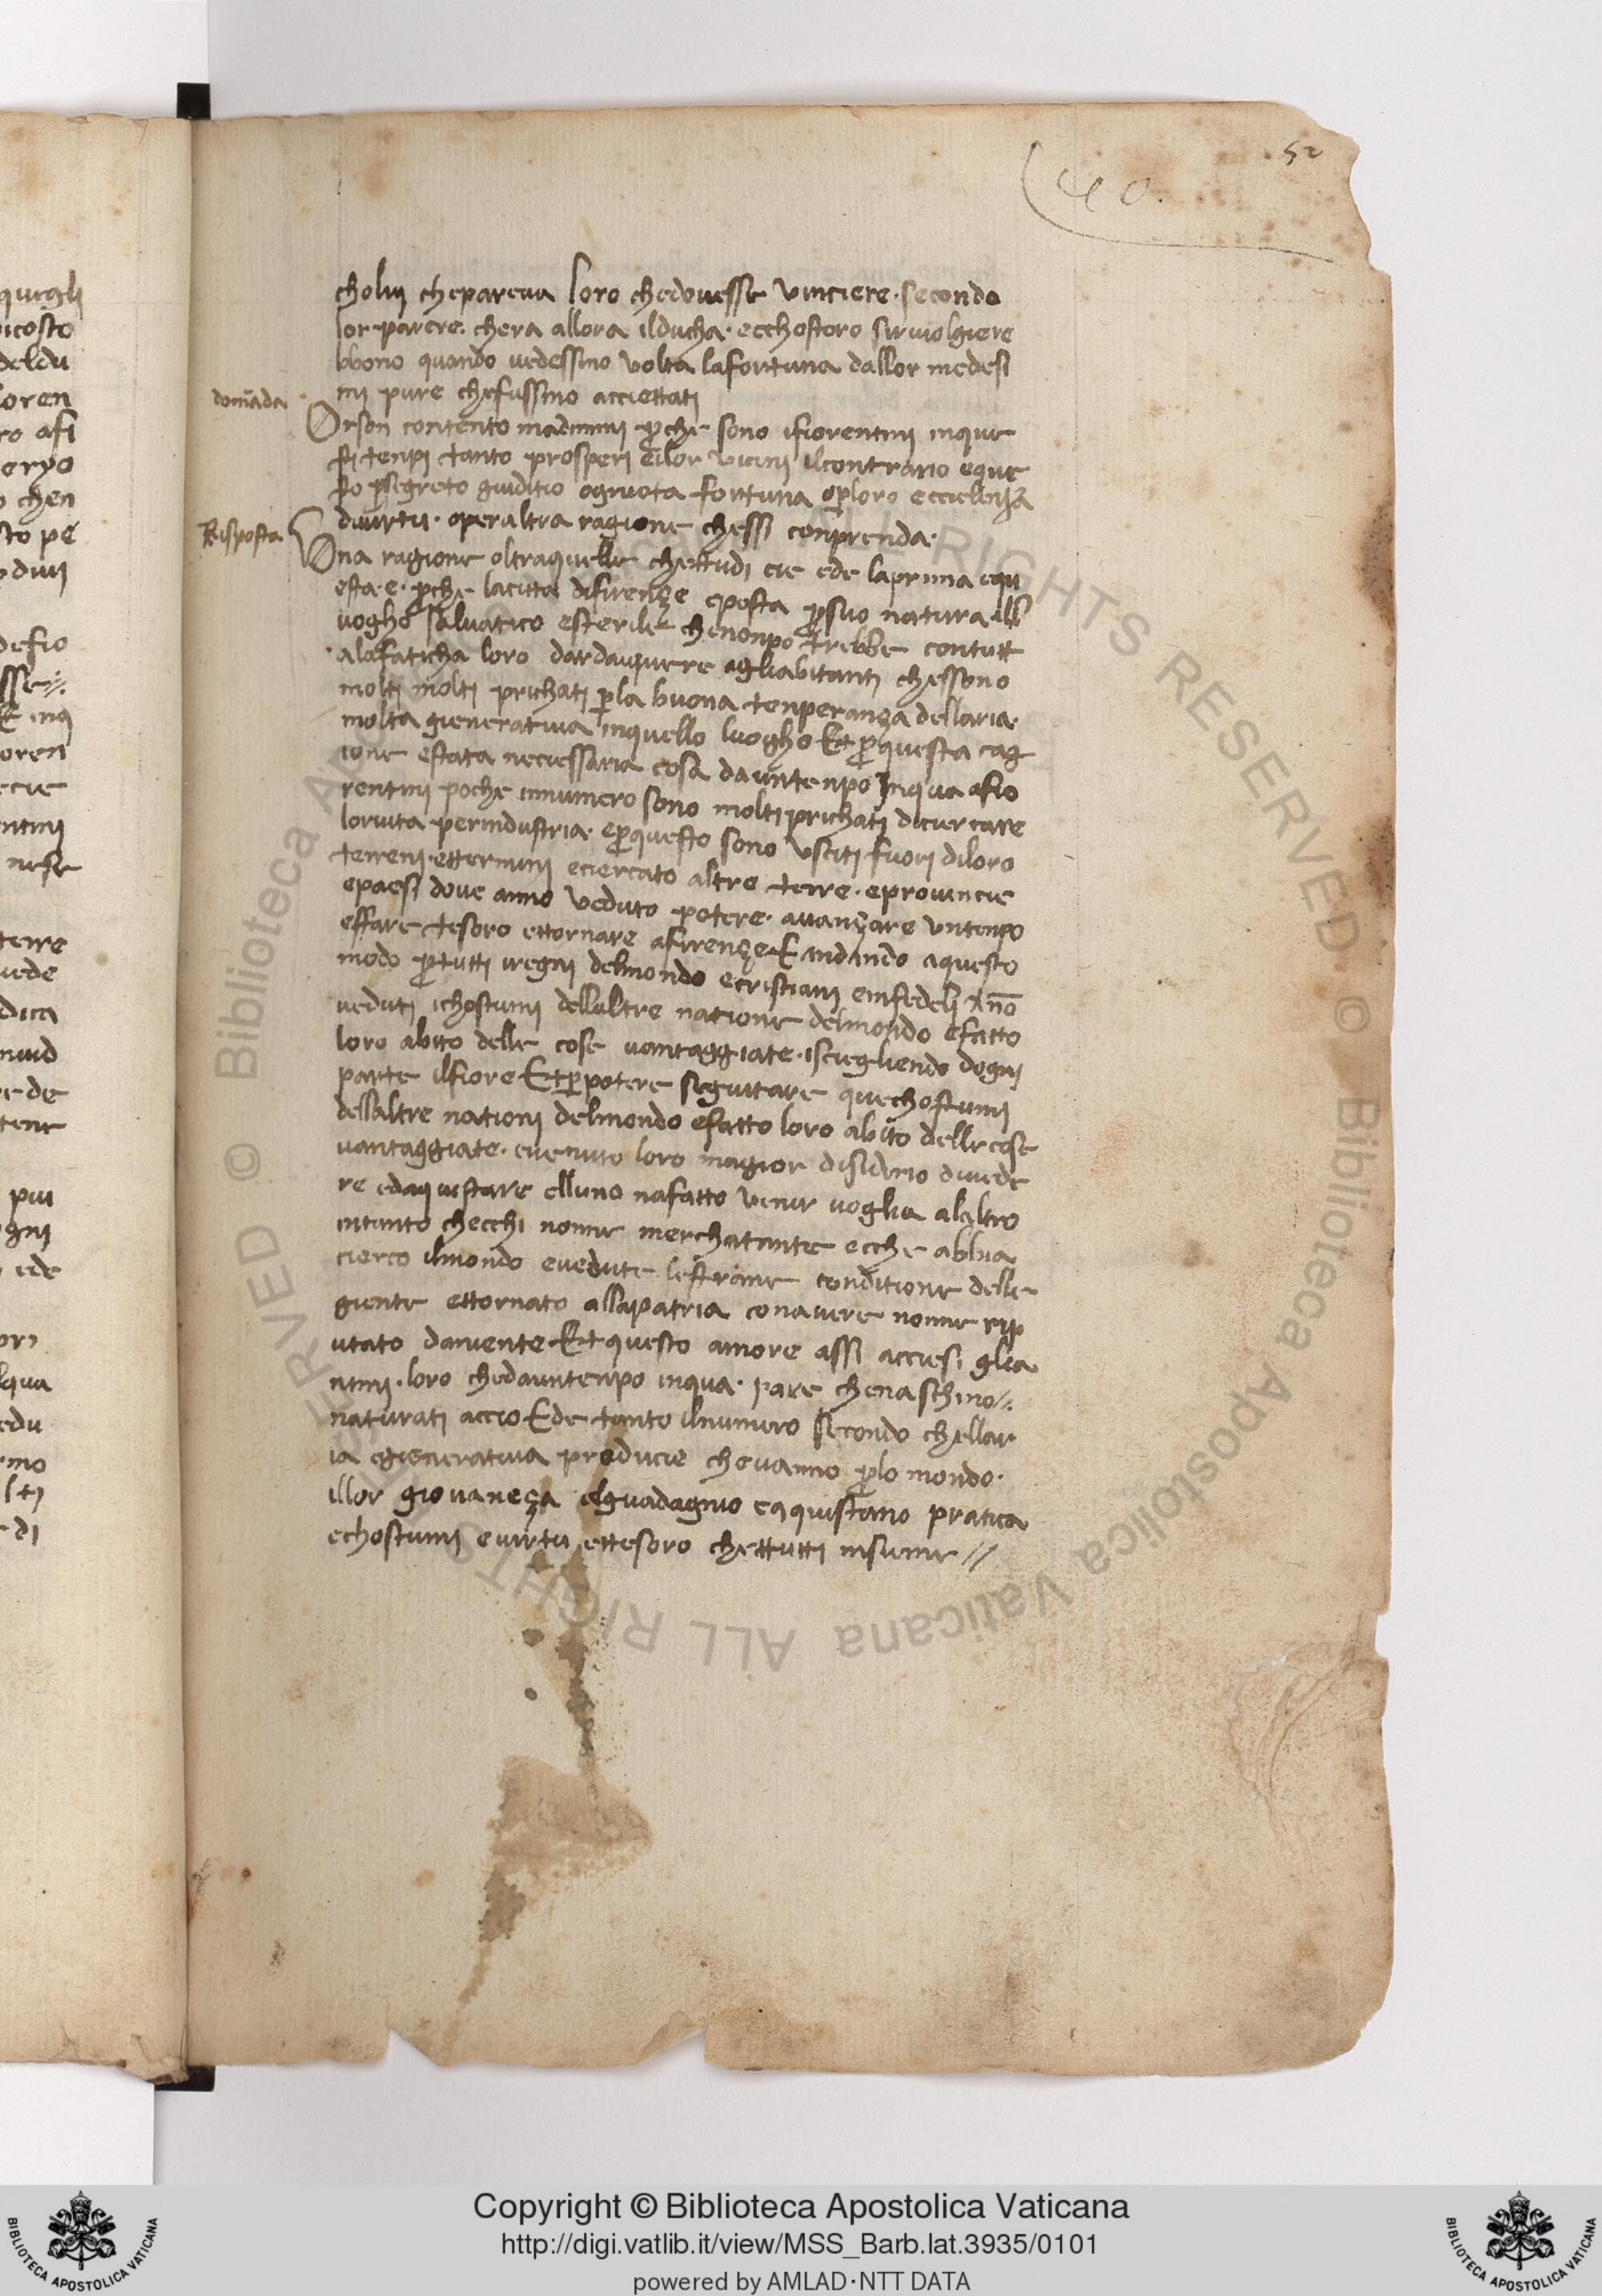 52
40.
cholui chepareva loro chedovesse vinciere · secondo
lor parere. chera allora ilducha · ecchostoro sirivolgiere
bbono quando vedessino volta lafortuna dallor medesi
mi pure chefussino acciettati
domada
Orson contento madimmi perche sono ifiorentini inque
sti tenpi tanto prosperi eillor vicini ilcontrario eque
sto segreto giuditio ogniota fortuna operloro eccielença
divirtu · operaltra ragione chessi conprenda ·
Risposta
Una ragione oltraquelle chettudi cie ede laprima equ
esta · e · perche lacitta difirençe eposta persuo natura ill
uogho salvatico esterile chenonpotrebbe contutt
alafaticha loro dardavivere agliabitanti chessono
molti molti prichati perla buona tenperança dellaria ·
molta gienerativa inquello luogho Et perquesta cag
ione estata neciessaria cosa dauntenpo inqua afio
rentini poche innumero sono molti prichati diciercare
lorvita perindustria · eperquesto sono usciti fuori diloro
terreni · ettermini eciercato altre terre · eprovincie
epaesi dove anno veduto potere · avançare untenpo
effare tesoro ettornare afirençe E andando aquesto
modo pertutti iregni delmondo ecristiani einfedeli
veduti ichostumi dellaltre natione delmondo efatto
loro abito delle cose vantaggiate · iscieglendo dogni
parte ilfiore Et perpotere seguitare quechostumi
dellaltre nationi delmondo efatto loro abito dellecose
vantaggiate · evenuto loro magior disiderio divede
re edaquistare elluno nafatto venir voglia alaltro
intanto checchi nonne merchatante ecche abbia
cierco ilmondo evedute lestrane conditione delle
giente ettornato allapatria conavere nonne rip
utato daniente Et questo amore assi acciesi glia
nimi · loro chedauntenpo inqua · pare chenaschino //
naturati accio Ede tanto ilnumero secondo chellar
ia egienerativa producie chevanno perlo mondo ·
illor giovaneça elguadagnio eaquistano pratica
echostumi evirtu ettesoro chettutti insieme //
Copyright © Biblioteca Apostolica Vaticana
http://digi.vatlib.it/view/MSS_Barb.lat.3935/0101
powered by AMLAD·NTT DATA